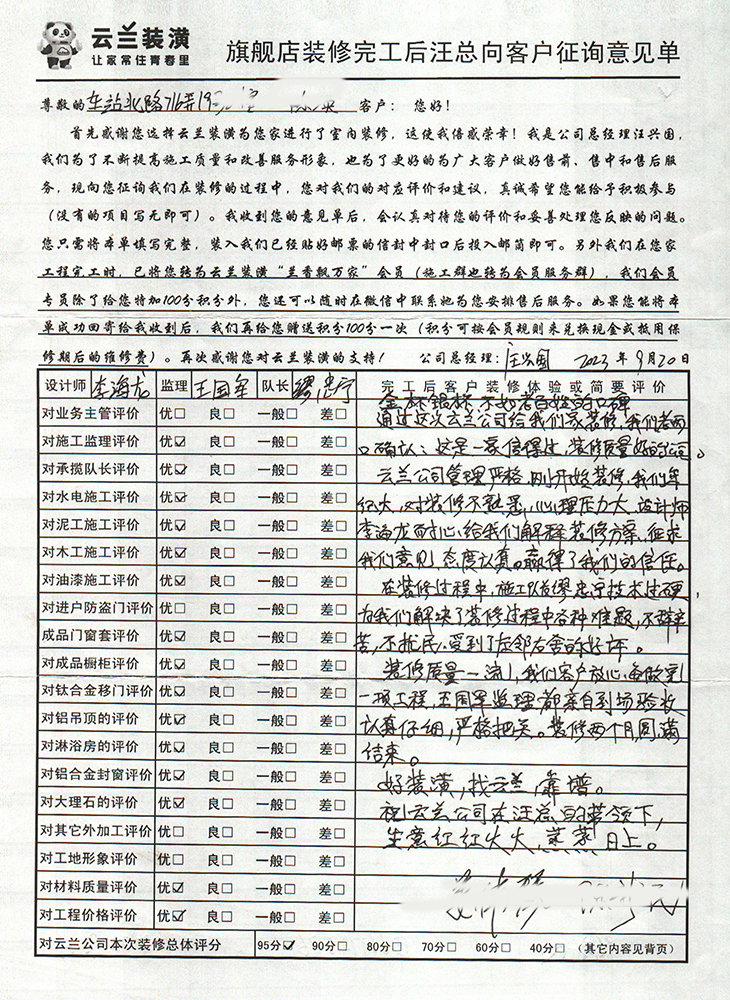 云兰装潢
让家常住青春里
旗舰店装修完工后汪总向客户征询意见单
尊敬的 车站北路716弄19 客户： 您好！
首先感谢您选择云兰装潢为您家进行了室内装修，这使我倍感荣幸！我是公司总经理汪兴国，
我们为了不断提高施工质量和改善服务形象，也为了更好的为广大客户做好售前、售中和售后服
务，现向您征询我们在装修的过程中，您对我们的对应评价和建议，真诚希望您能给予积极参与
（没有的项目写无即可）。我收到您的意见单后，会认真对待您的评价和妥善处理您反映的问题。
您只需将本单填写完整，装入我们已经贴好邮票的信封中封口后投入邮筒即可。另外我们在您家
工程完工时，已将您转为云兰装潢“兰香飘万家”会员（施工群也转为会员服务群），我们会员
专员除了给您特加100分积分外，您还可以随时在微信中联系她为您安排售后服务。如果您能将本
单成功回寄给我收到后，我们再给您赠送积分100分一次（积分可按会员规则来兑换现金或抵用保
修期后的维修费）。再次感谢您对云兰装潢的支持！ 公司总经理：汪兴国 2023年9月20日
设计师 李海龙 监理 王国军 队长 缪忠宁 完工后客户装修体验或简要评价
对业务主管评价 优□ 良□ 一般□ 差□
对施工监理评价 优☑ 良□ 一般□ 差□
对承揽队长评价 优☑ 良□ 一般□ 差□
对水电施工评价 优☑ 良□ 一般□ 差□
对泥工施工评价 优☑ 良□ 一般□ 差□
对木工施工评价 优☑ 良□ 一般□ 差□
对油漆施工评价 优☑ 良□ 一般□ 差□
对进户防盗门评价 优□ 良□ 一般□ 差□
成品门窗套评价 优☑ 良□ 一般□ 差□
对成品橱柜评价 优☑ 良□ 一般□ 差□
对钛合金移门评价 优☑ 良□ 一般□ 差□
对铝吊顶的评价 优☑ 良□ 一般□ 差□
对淋浴房的评价 优☑ 良□ 一般□ 差□
对铝合金封窗评价 优☑ 良□ 一般□ 差□
对大理石的评价 优☑ 良□ 一般□ 差□
对其它外加工评价 优□ 良□ 一般□ 差□
对工地形象评价 优□ 良□ 一般□ 差□
对材料质量评价 优☑ 良□ 一般□ 差□
对工程价格评价 优☑ 良□ 一般□ 差□
金杯银杯不如老百姓的口碑
通过这次云兰公司给我们家装修，我们老两
口确认：这是一家信得过，装修质量好的公司。
云兰公司管理严格，刚开始装修，我们年
纪大，对装修不熟悉，心理压力大，设计师
李海龙耐心给我们解释装修方案，征求
我们意见，态度认真。赢得了我们的信任。
在装修过程中，施工队长缪忠宁技术过硬，
为我们解决了装修过程中各种难题，不辞辛
苦，不扰民，受到了左邻右舍的好评。
装修质量一流，我们客户放心，每做完
一项工程，王国军监理都亲自到场验收
认真仔细，严格把关。装修两个月，圆满
结束。
好装潢，找云兰，靠谱。
祝云兰公司在汪总的带领下，
生意红红火火，蒸蒸日上。
对云兰公司本次装修总体评分 95分☑ 90分□ 80分□ 70分□ 60分□ 40分□ （其它内容见背页）